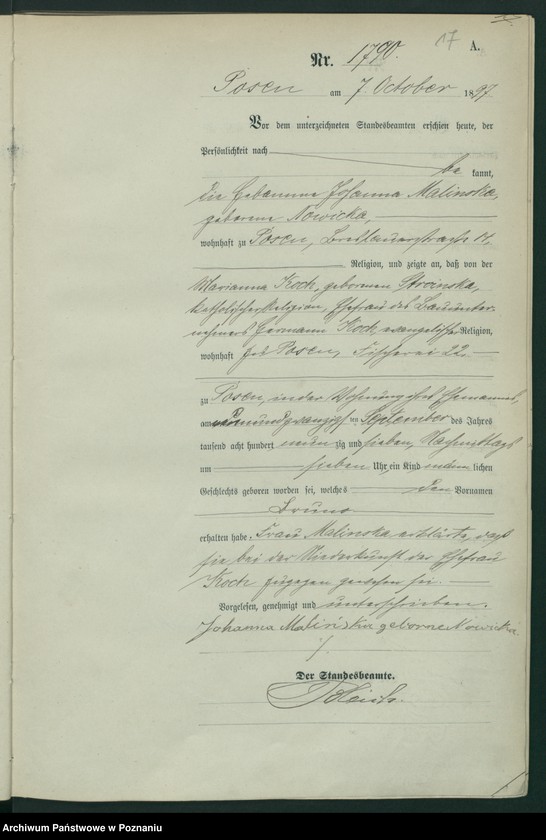 17 A.
Nr. 1790.
Posen am 7. October 1897
Vor dem unterzeichneten Standesbeamten erschien heute, der
Persönlichkeit nach
be kannt,
die Hebamme Johanna Malinska,
geborene Nowicka,
wohnhaft zu Posen, Breslauerstraße 14.
Religion, und zeigte an, daß von der
Marianna Koch, geborenen Stroinska,
katholischer Religion, Ehefrau des Bauunter-
nehmers Hermann Koch, evangelischer Religion,
wohnhaft zu Posen, Fischerei 22.
zu Posen, in der Wohnung des Ehemannes,
am undzwanzigsten September des Jahres
tausend acht hundert neunzig und sieben, Nachmittags
um sieben Uhr, ein Kind männlichen
Geschlechts geboren worden sei, welches den Vornamen
Bruno
erhalten habe. Frau Malinska erklärte, daß
sie bei der Niederkunft der Ehefrau
Koch zugegen gewesen sei.
Vorgelesen, genehmigt und unterschrieben.
Johanna Malińska geborne Nowicka
Der Standesbeamte.
Archiwum Państwowe w Poznaniu